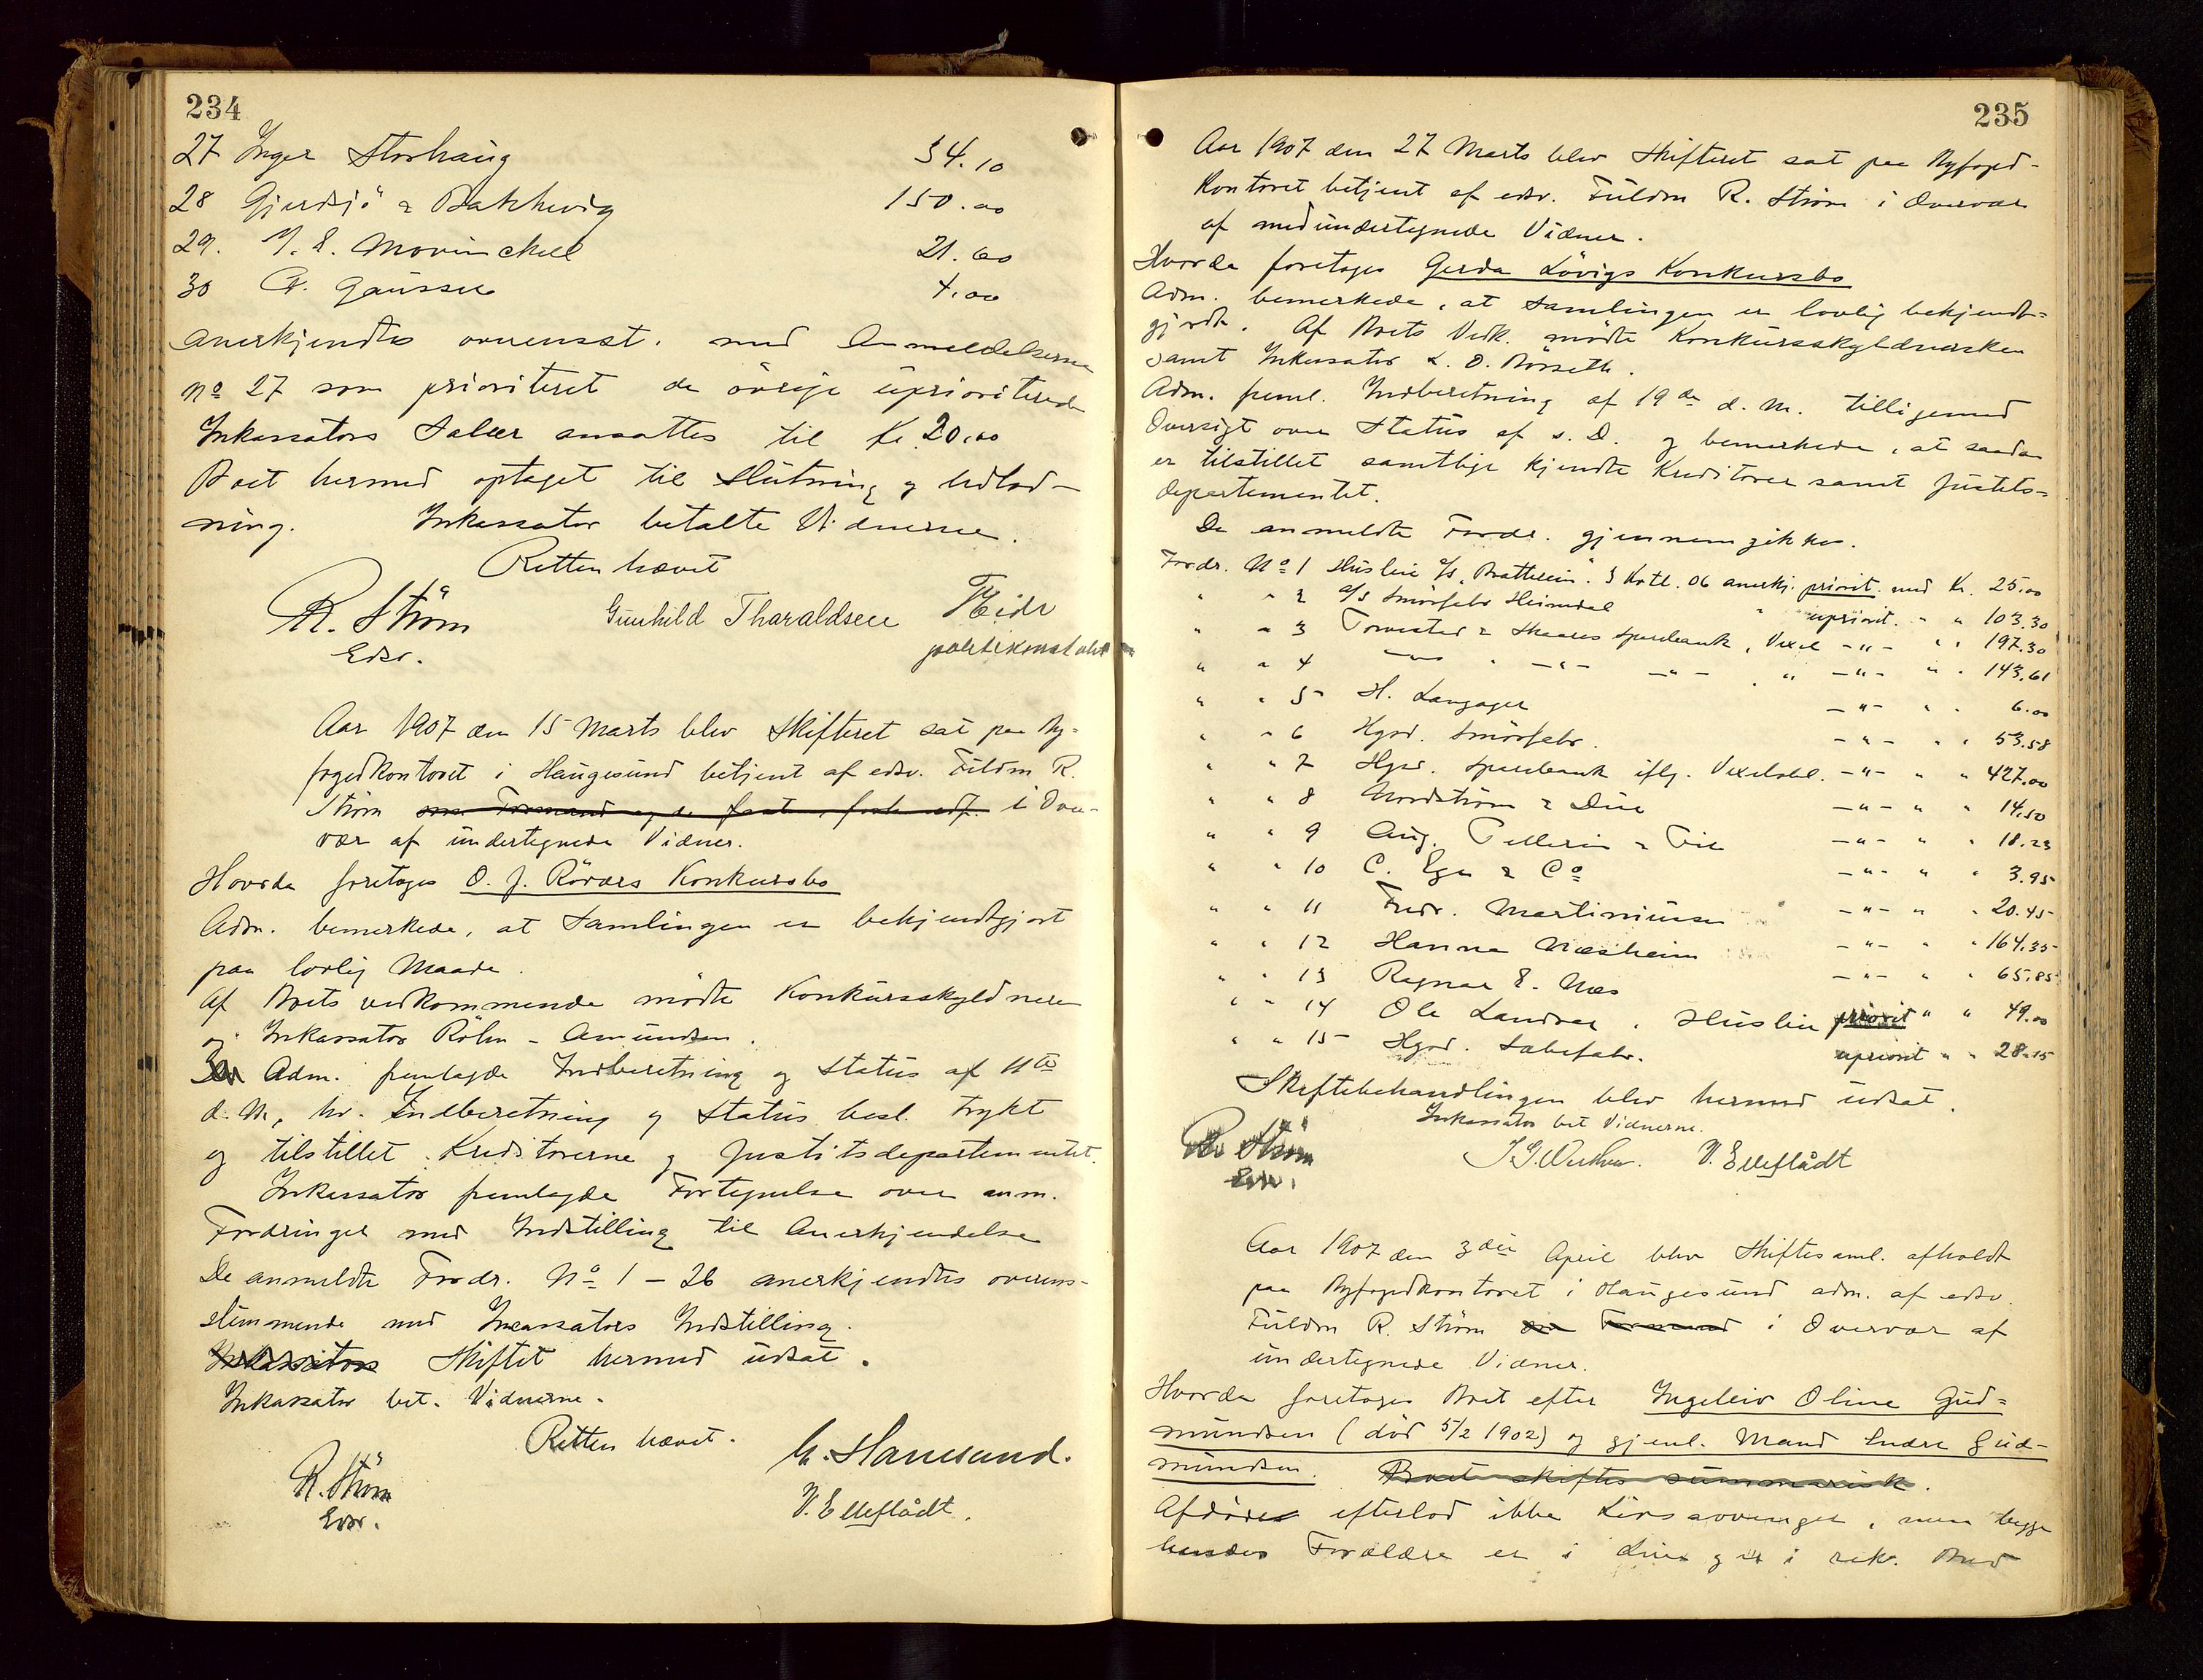 234
27 Inger Storhaug 54.10
28 Gjerdsjö & Bakkevig 150.00
29. M. E. Movinckell 21.60
30 A. Gaussen 4.00
anerkjendtes overensst. med Anmeldelserne
No 27 som prioriteret de övrige uprioriterede
Inkassators Salær ansattes til Kr. 20.00
Boet hermed optaget til Slutning og Udlod-
ning. Inkassator betalte Vidnerne.
Retten hævet
R. Ström Gunhild Tharaldsen
Edsv. politikonstabel
Aar 1907 den 15 Marts blev Skifteret sat paa By-
fogedkontoret i Haugesund betjent af edsv. Fuldm R.
Ström som Formand og de i Over-
vær af undertegnede Vidner.
Hvorda foretoges O. J. Röværs Konkursbo
Adm. bemerkede, at Samlingen er bekjendtgjort
paa lovlig Maade.
Af Boets vedkommende mödte Konkursskyldneren
og Inkassator Röhn-Amundsen.
Adm. fremlagde Indberetning og Status af 11te
d. M., hv. Indberetning og Status besl. trykt
og tilstillet Kreditorerne og Justitsdepartementet.
Inkassator fremlagde Fortegnelse over anm.
Fordringer med Indstilling til Anerkjendelse
De anmeldte Fordr. No 1 - 26 anerkjendtes overens-
stemmende med Incassators Indstilling.
Inkassators Skiftet hermed udsat.
Inkassator bet. Vidnerne.
Retten hævet.
R. Ström
Edsv.
V. Elleflådt.
235
Aar 1907 den 27 Marts blev Skifteret sat paa Byfoged-
kontoret betjent af edsv. Fuldm R. Ström i Overvær
af medundertegnede Vidner.
Hvorda foretoges Gerda Lövigs Konkursbo
Adm. bemerkede, at Samlingen er lovlig bekjendt-
gjordt. Af Boets Vedk. mödte Konkursskyldnersken
samt Inkassator L. O. Börseth.
Adm. freml. Indberetning af 19de d. M. tilligemed
Oversigt over Status af s. D. og bemerkede, at saadan
er tilstillet samtlige kjendte Kreditorer samt Justits-
departementet.
De anmeldte Fordr. gjennemgikkes.
Fordr. No 1 Husleie "Bratteim". 3 Kvtl. 06 anerkj. priorit. med Kr. 25.00
" " 2 A/S Smörfabr Heimdal " upriorit. " " 103.30
" " 3 Torvestad & Skaares Sparebank, Vexel - " - " " 197.30
" " 4 - " - - " - " - " - " " 143.61
" " 5 H. Langager - " - " " 6.00
" " 6 Hgsd. Smörfabr. - " - " " 53.58
" " 7 Hgsd. Sparebank iflg. Vexelobl. - " - " " 427.00
" " 8 Nordström & Due - " - " " 14.50
" " 9 Aug. Pellerin & Fils - " - " " 18.23
" " 10 C. Eger & Co - " - " " 3.95
" " 11 Fredr. Martiniusen - " - " " 20.45
" " 12 Hanna Næsheim - " - " " 164.35
" " 13 Ragnar E. Næs - " - " " 65.85
" " 14 Ole Landvar, Husleie priorit " " 49.00
" " 15 Hgsd. Sæbefabr. upriorit " " 28.15
Skiftebehandlingen blev hermed udsat.
Inkassator bet Vidnerne.
R. Ström V. Elleflådt
Edsv.
Aar 1907 den 3die April blev Skiftesaml. afholdt
paa Byfogedkontoret i Haugesund adm. af edsv.
Fuldm R. Ström som Formand i Overvær af
undertegnede Vidner.
Hvorda foretoges Boet efter Ingeleiv Oline Gud-
mundsen (död 5/2 1902) og gjenl. Mand Endre Gud-
mundsen. Boet skiftes summarisk.
Afdöde efterlod ikke Livsarvinger, men begge
hendes Forældre er i Live og er i rek. Bud